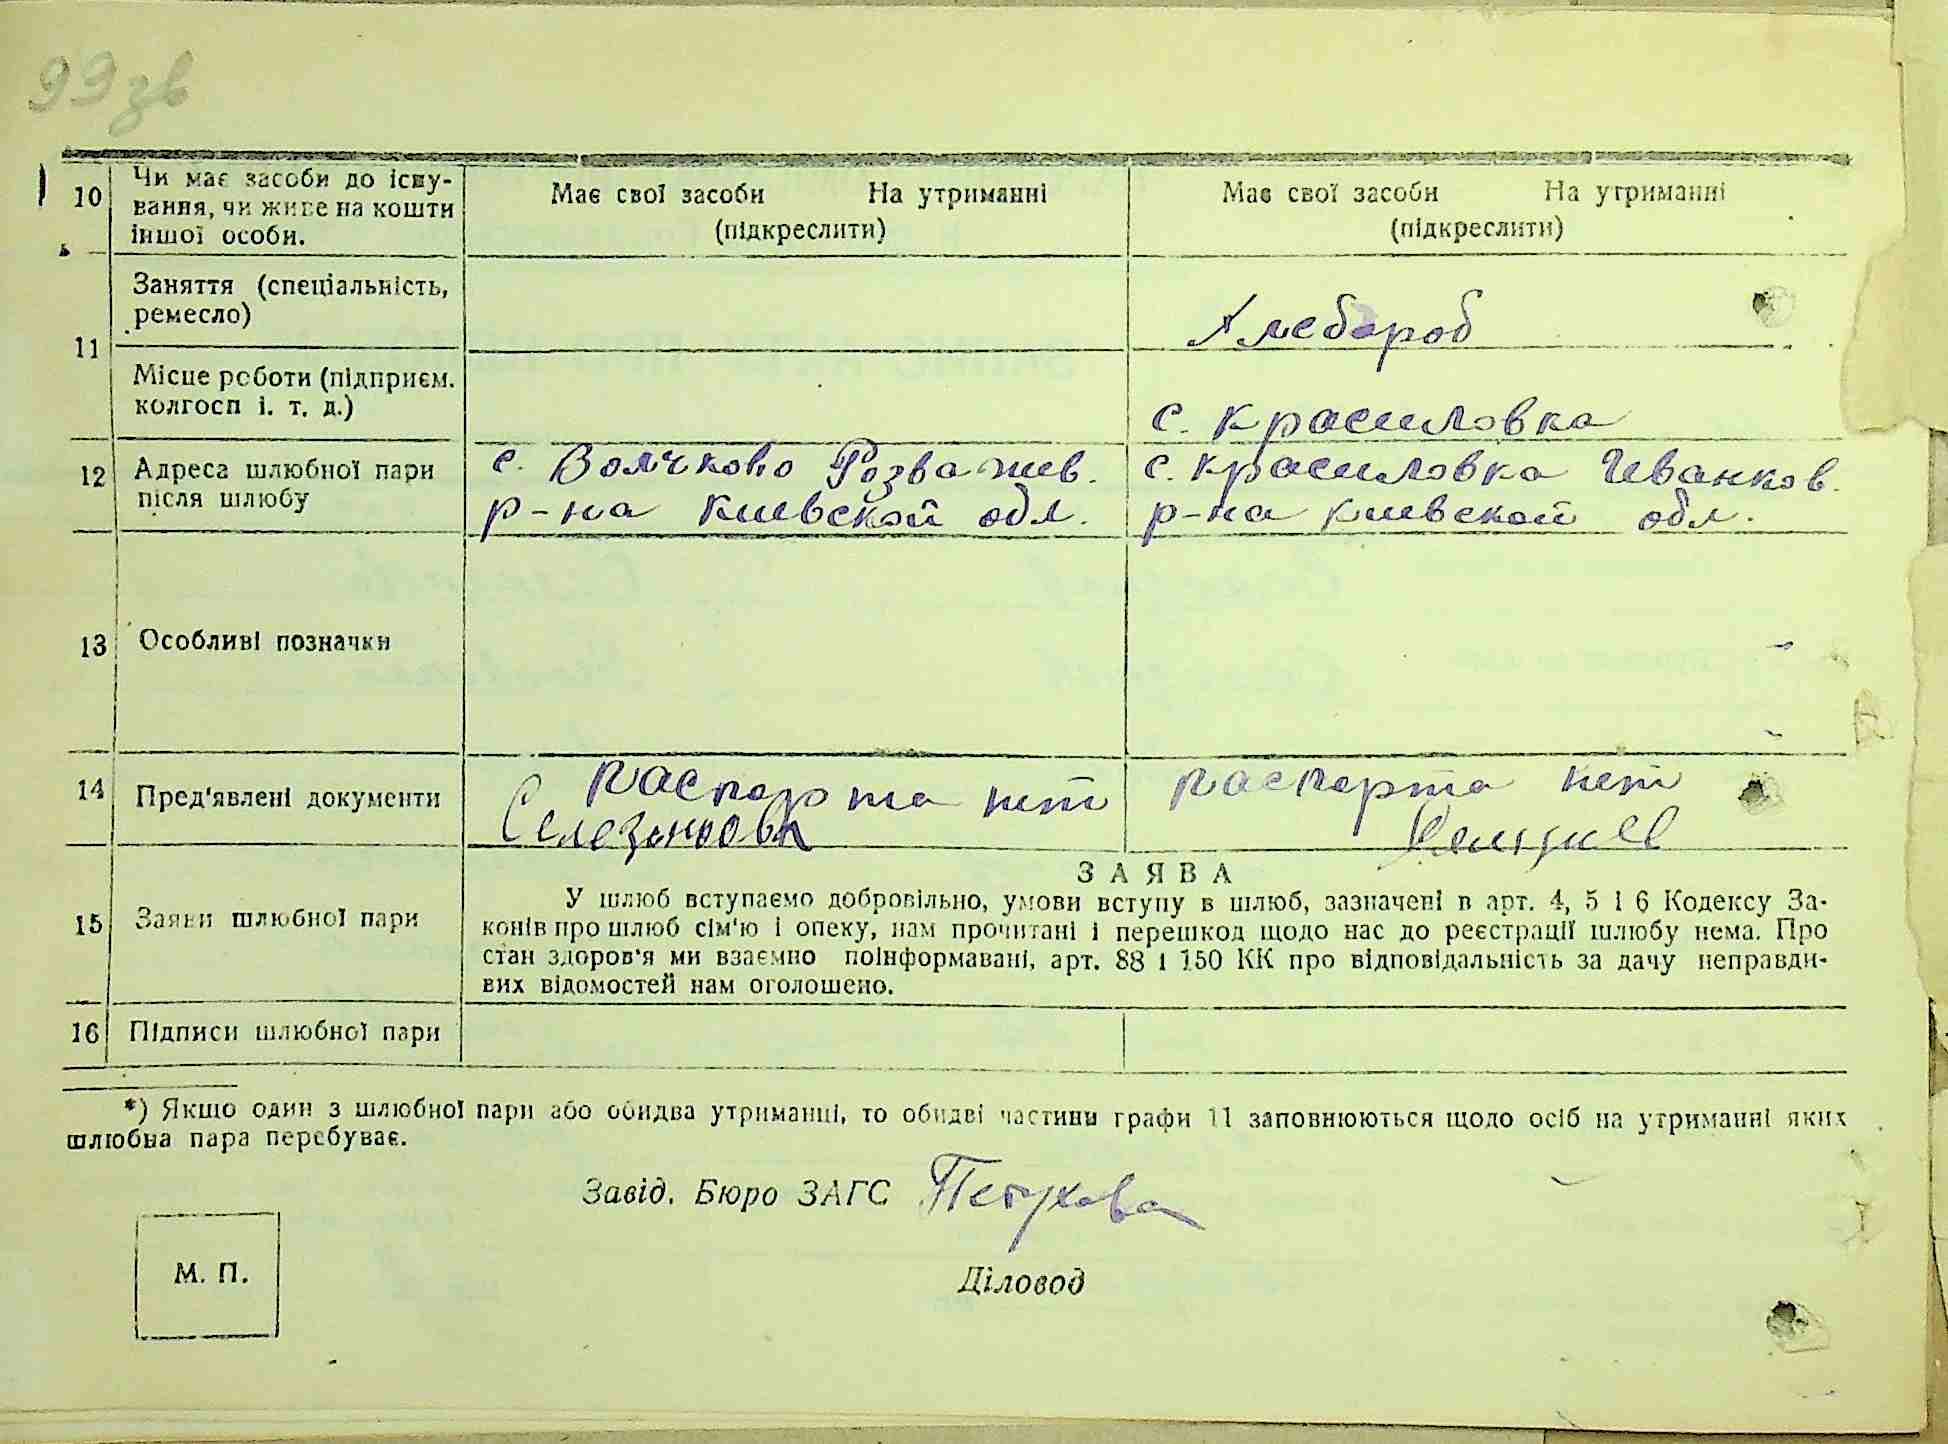 99 зв
10 Чи має засоби до існу-
вання, чи живе на кошти
іншої особи.
Має свої засоби На утриманні
(підкреслити)
Має свої засоби На утриманні
(підкреслити)
11 Заняття (спеціальність,
ремесло)
Хлебороб
Місце роботи (підприєм.
колгосп і. т. д.)
с. Красиловка
12 Адреса шлюбної пари
після шлюбу
с. Волчково Розважев.
р-на Киевской обл.
с. Красиловка Иванков.
р-на Киевской обл.
13 Особливі позначки
14 Пред'явлені документи
паспорта нет
Селезньова
паспорта нет
15 Заяви шлюбної пари
ЗАЯВА
У шлюб вступаємо добровільно, умови вступу в шлюб, зазначені в арт. 4, 5 і 6 Кодексу За-
конів про шлюб сім'ю і опеку, нам прочитані і перешкод щодо нас до реєстрації шлюбу нема. Про
стан здоров'я ми взаємно поінформавані, арт. 88 і 150 КК про відповідальність за дачу неправди-
вих відомостей нам оголошено.
16 Підписи шлюбної пари
*) Якщо один з шлюбної пари або обидва утриманці, то обидві частини графи 11 заповнюються щодо осіб на утриманні яких
шлюбна пара перебуває.
Завід. Бюро ЗАГС Петухова
М. П.
Діловод